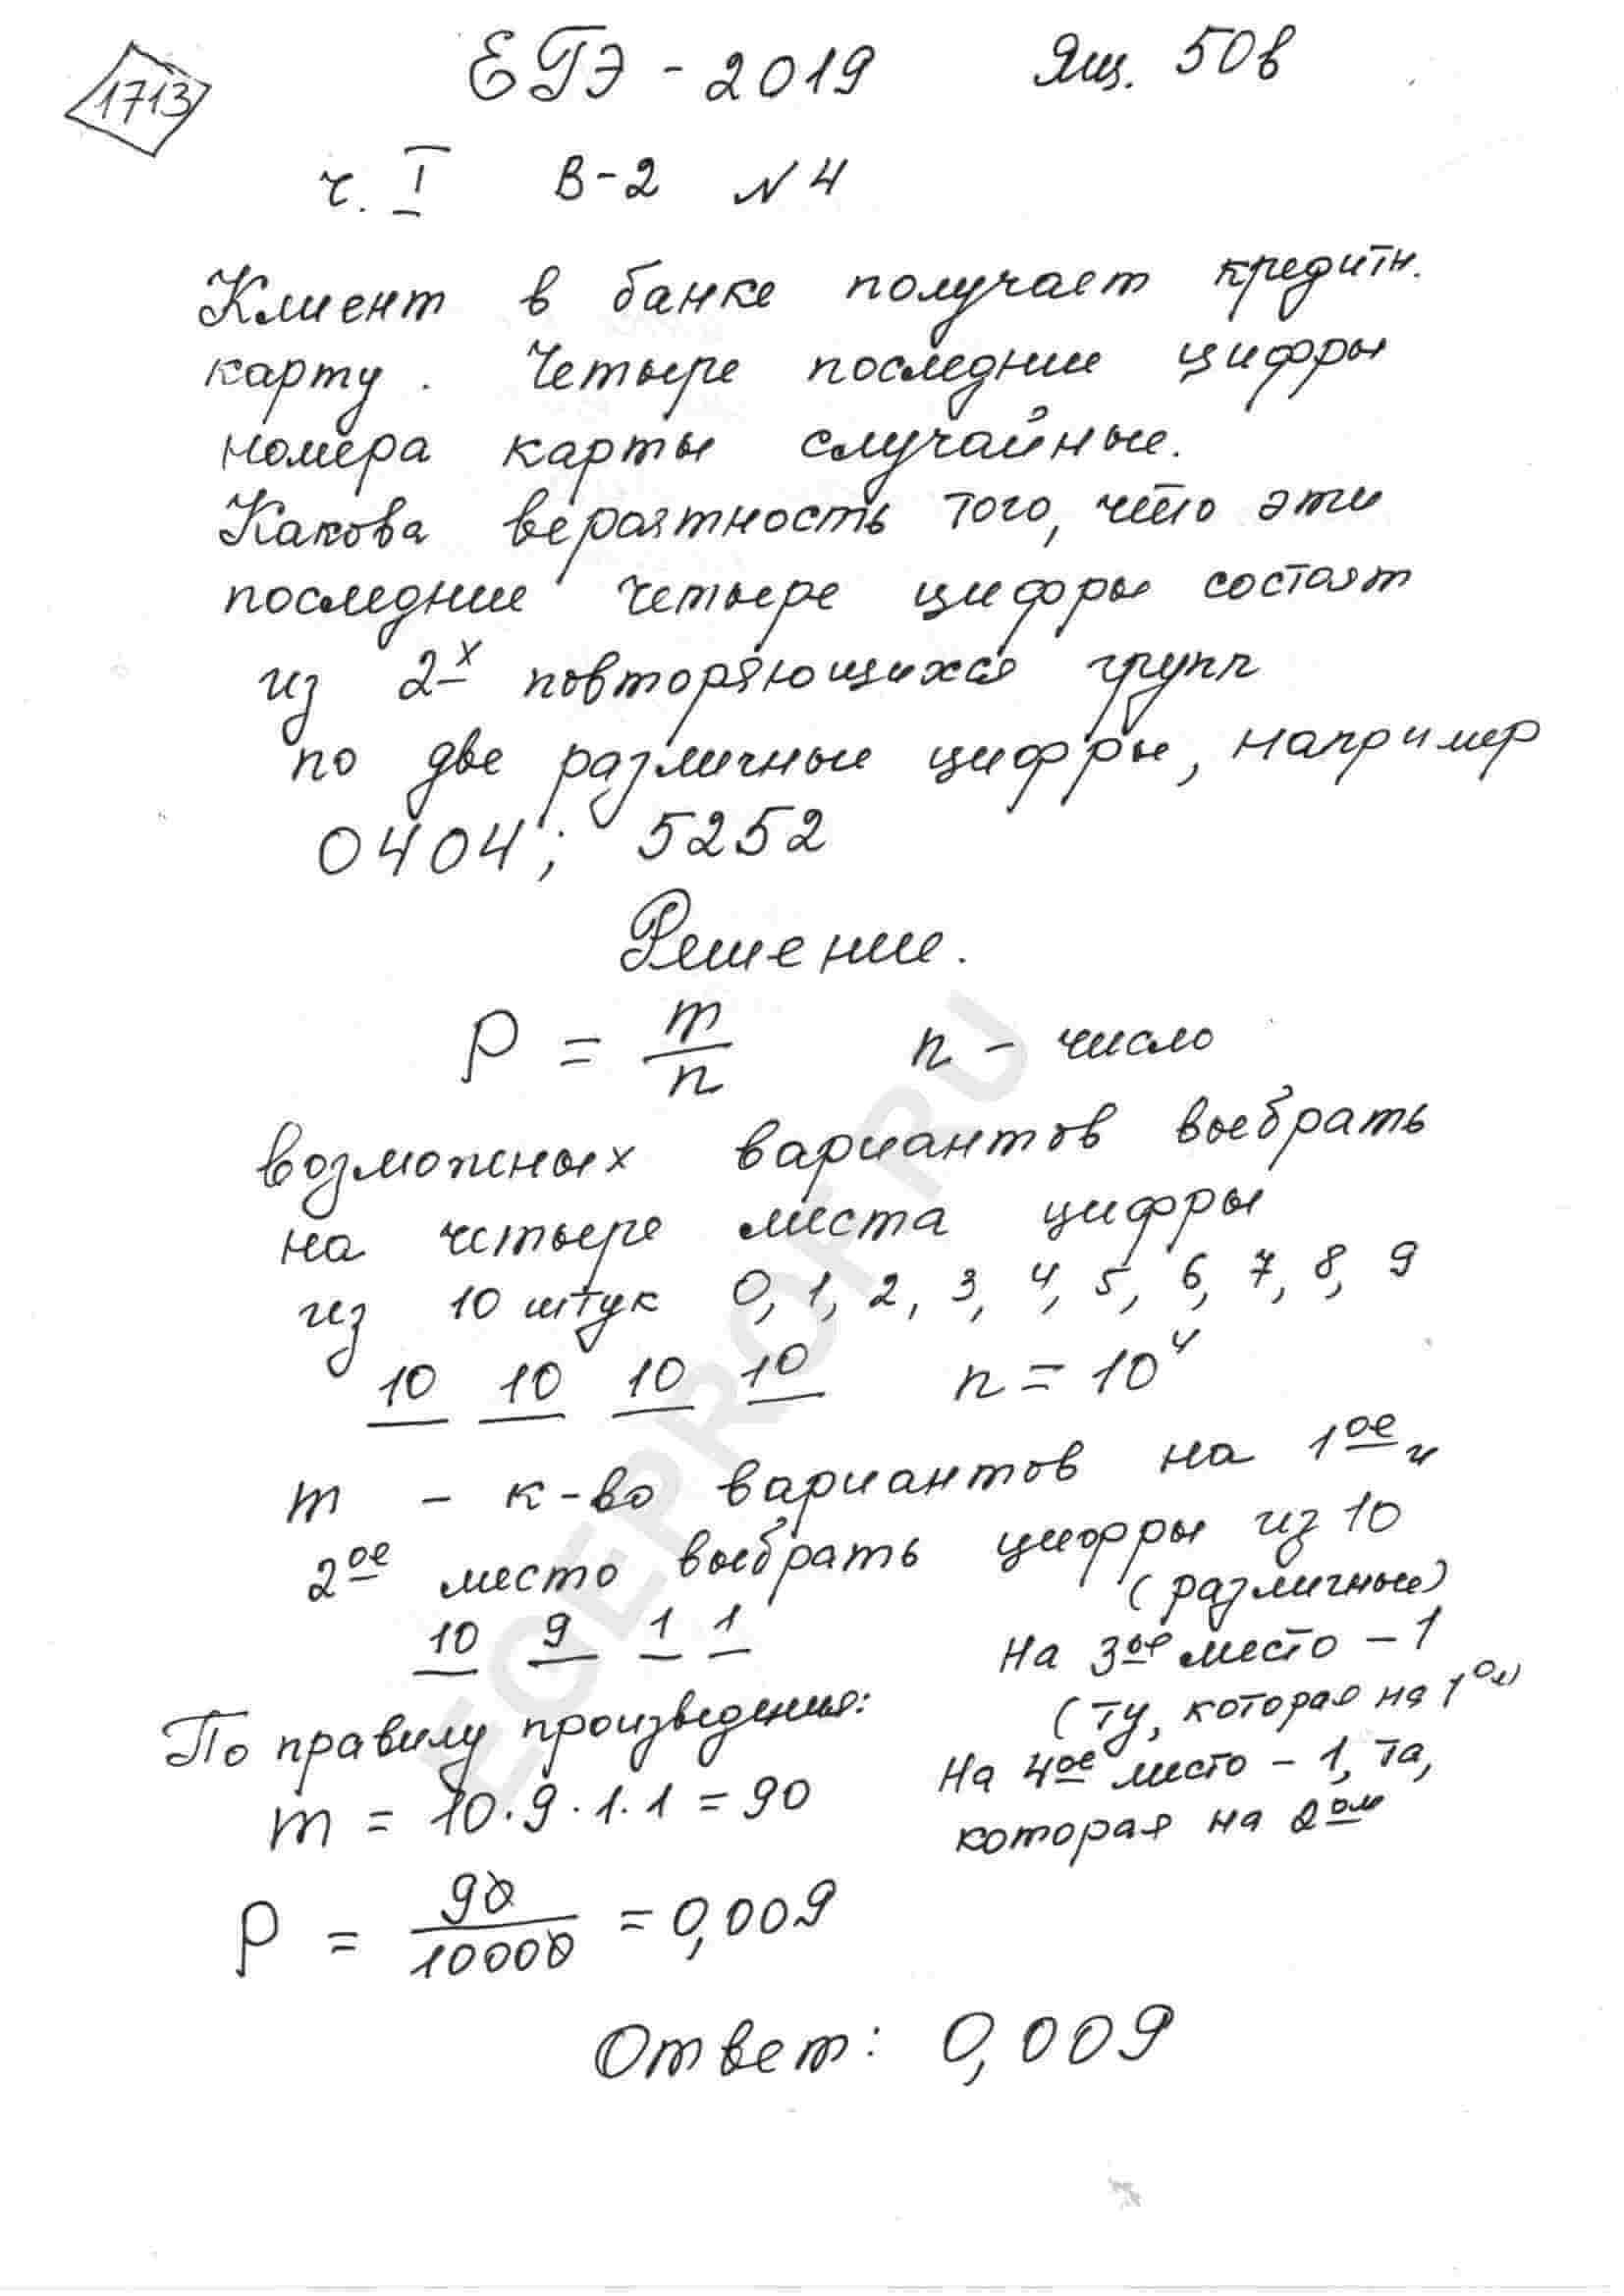 1713
ЕГЭ - 2019 Ящ. 50в
ч. I В-2 N 4
Клиент в банке получает кредитн.
карту. Четыре последние цифры
номера карты случайные.
Какова вероятность того, что эти
последние четыре цифры состоят
из 2х повторяющихся групп
по две различные цифры, например
0404; 5252
Решение.
P = m/n n - число
возможных вариантов выбрать
на четыре места цифры
из 10 штук 0, 1, 2, 3, 4, 5, 6, 7, 8, 9
10 10 10 10 n = 10⁴
m - к-во вариантов на 1ое и
2ое место выбрать цифры из 10
(различные)
10 9 1 1
На 3ое место - 1
(ту, которая на 1ом)
По правилу произведения:
На 4ое место - 1, та,
m = 10·9·1·1 = 90
которая на 2ом
P = 90/10000 = 0,009
Ответ: 0,009
EGEPROF.RU